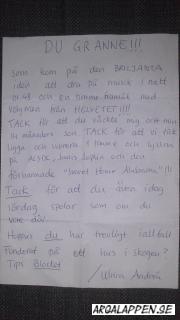 DU GRANNE!!!
som kom på den BRILJANTA
idén att dra på musik i natt
01.48 och en timme framåt med
volymen från HELVETET!!!!
TACK för att du väckte mig och min
14 månaders son. TACK för att vi fick
ligga och vara vakna 1 timme och lyssna
på AC/DC, Janis Joplin och den
förbannade "Sweet Home Alabama"!!!
Tack för att du även idag
lördag spelar som om du
vore döv.
Hoppas du har trevligt iallafall
Funderat på ett hus i skogen?
Tips Blocket
/Ulrica Andrén
ARGALAPPEN.SE